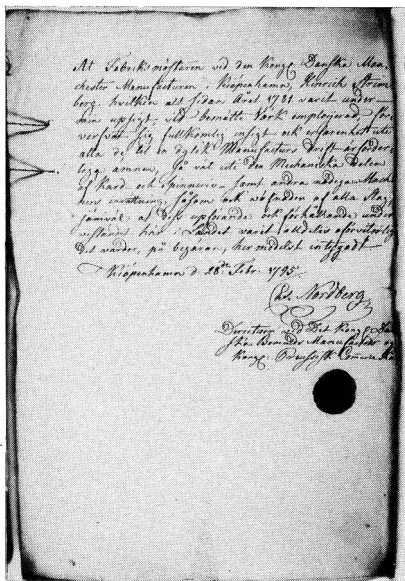 At Fabriksmästaren vid den Kongl. Danska Man-
chester Manufacturen i Kiöpenhamn, Hinrich Ström-
berg, hvilken alt sidan Året 1781 varit under
min upsigt, vid bemält Värk employerad, för-
verfvat sig fullkomlig insigt och erfarenhet uti
alla de til en dylik Manufacturs drift erforder-
liga ämnen, så väl uti den Mechaniska Delen
af Kard och Spinneri- samt andra nödiga Machi-
ners inrättning, såsom ock väfnaden af alla Slag,
jämväl at dess upförande och förhållande under
vistandet här i Landet varit alldeles oförvitterlig
Det varder, på begäran, hermedelst intygadt
Kiöpenhamn d. 28de Febr. 1795.
Nordberg
Directeur ved Det Kongl.
Manufactur og
Kongl.